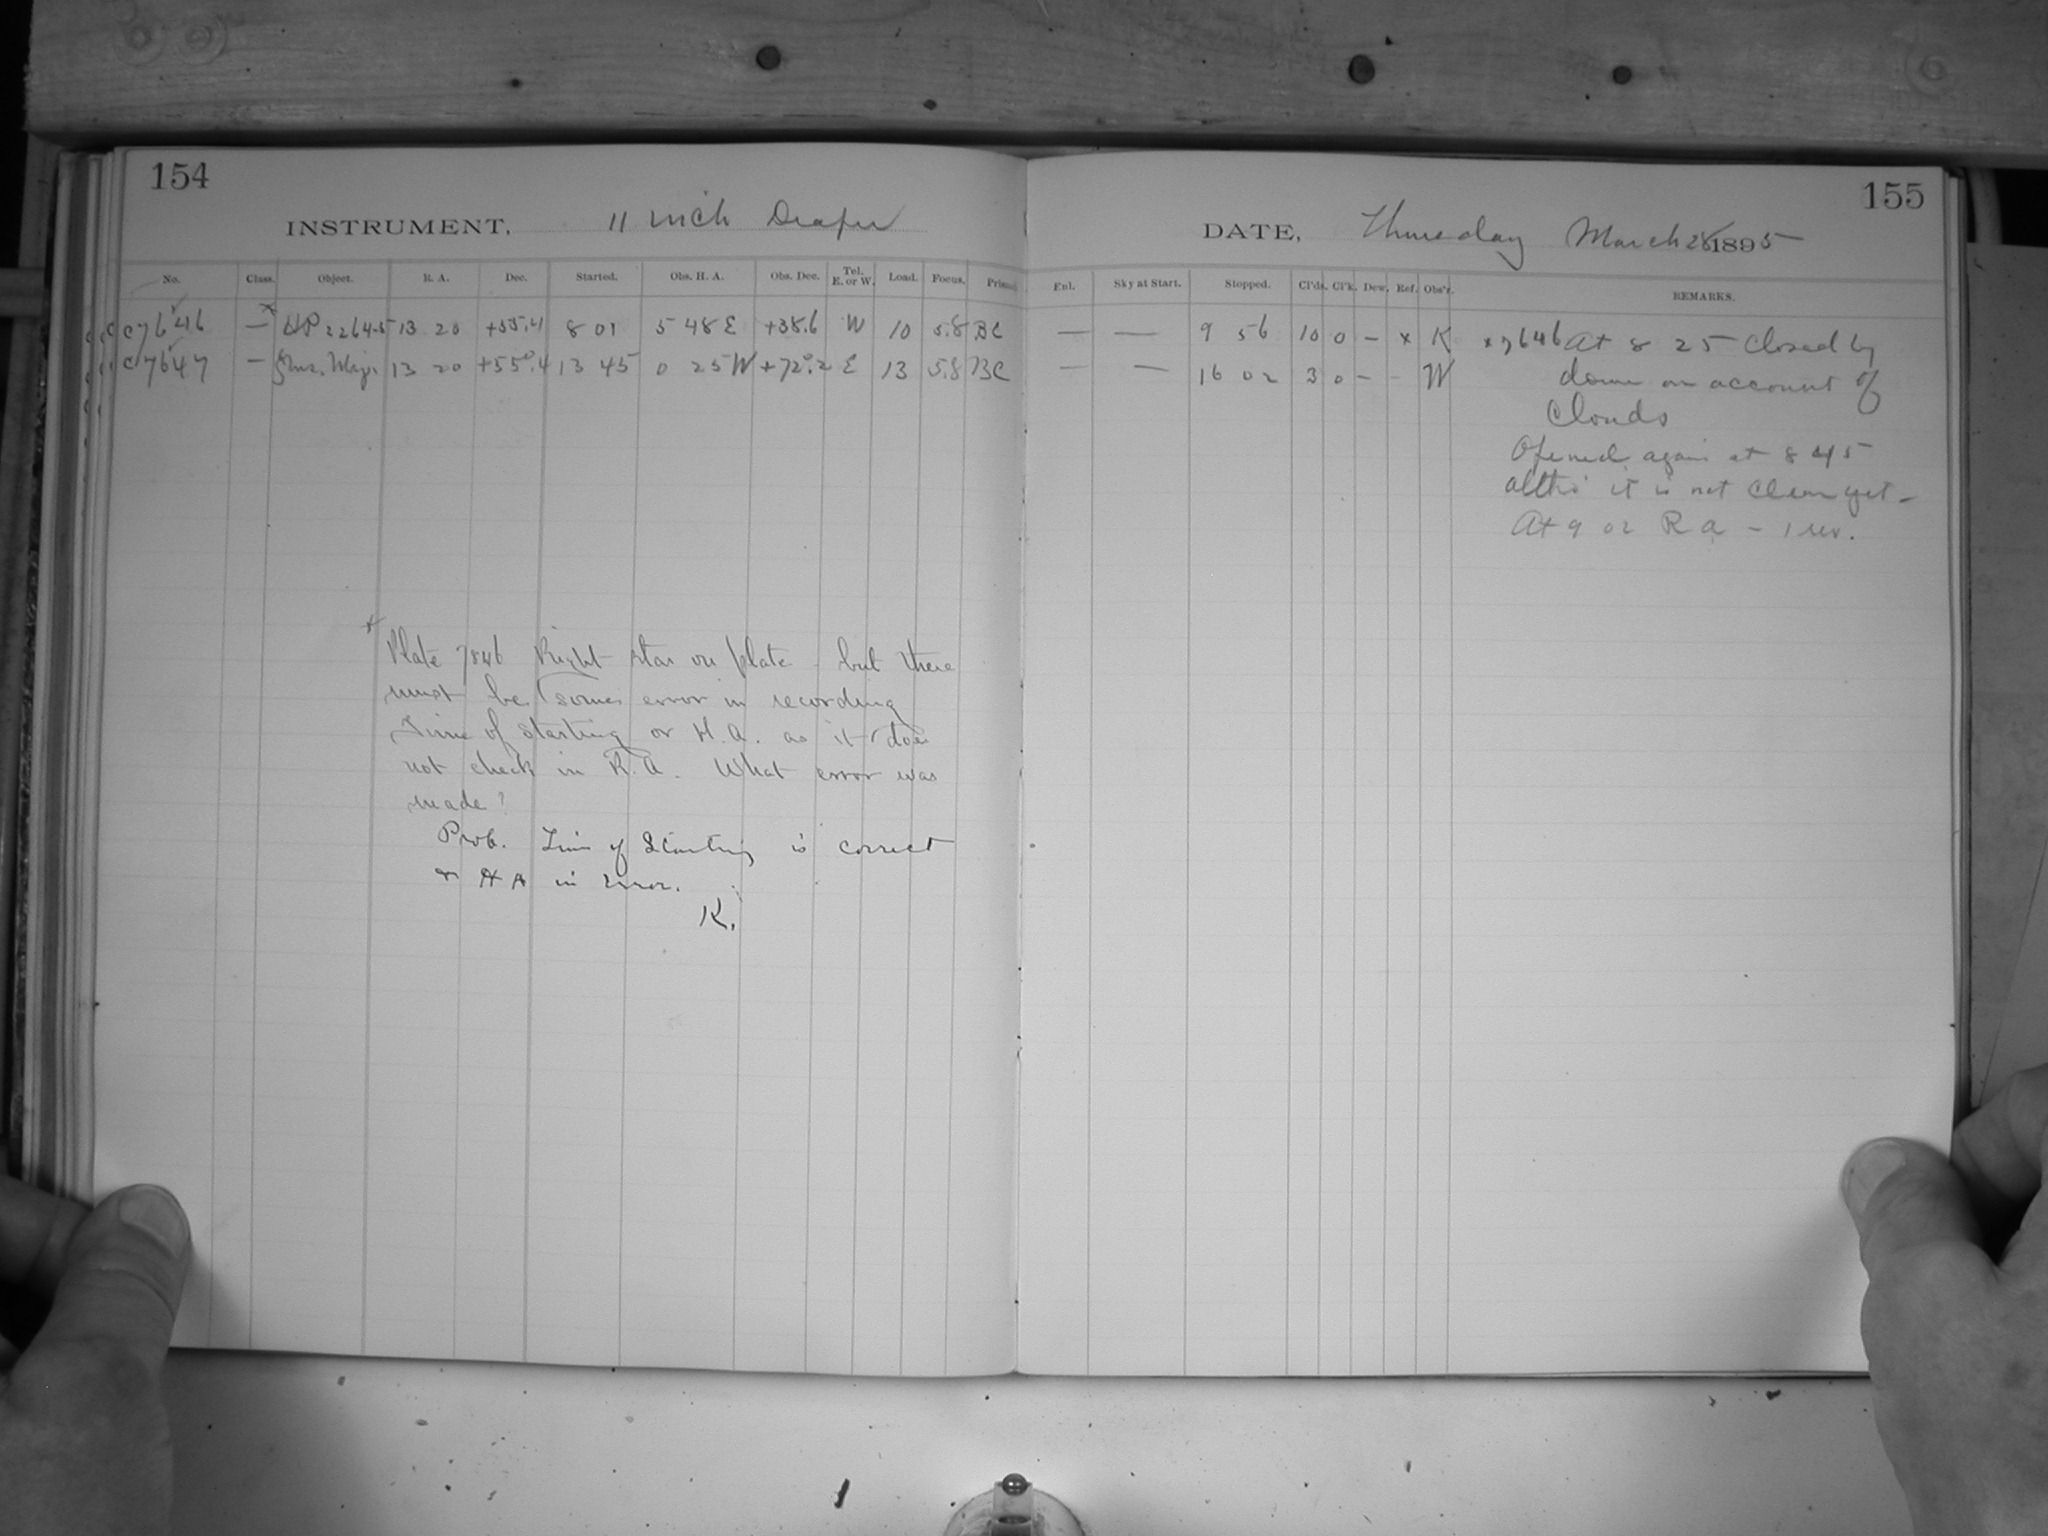 154
INSTRUMENT, 11 inch Draper
No. Class. Object. R. A. Dec. Started. Obs. H. A. Obs. Dec. Tel. E. or W. Load. Focus. Prism.
C7646 — HP 2264-5 13 20 +55.4 8 01 5 48 E +38.6 W 10 5.8 BC
C7647 — ζ Urs. Maj. 13 20 +55°.4 13 45 0 25 W +72°.2 E 13 5.8 BC
* Plate 7646 Right star on plate - but there
must be some error in recording
Time of Starting or H.A. as it does
not check in R.A. What error was
made?
Prob. Time of Starting is correct
& HA in error.
K.
155
DATE, Thursday March 28 1895
Enl. Sky at Start. Stopped. Cl'ds. Cl'k. Dew. Ref. Obs'r. REMARKS.
— — 9 56 10 0 – x K x 7646 At 8 25 Closed by
dome on account of
Clouds
— — 16 02 3 0 – – W
Opened again at 8 45
altho' it is not clear yet –
At 9 02 R a – 1 rev.